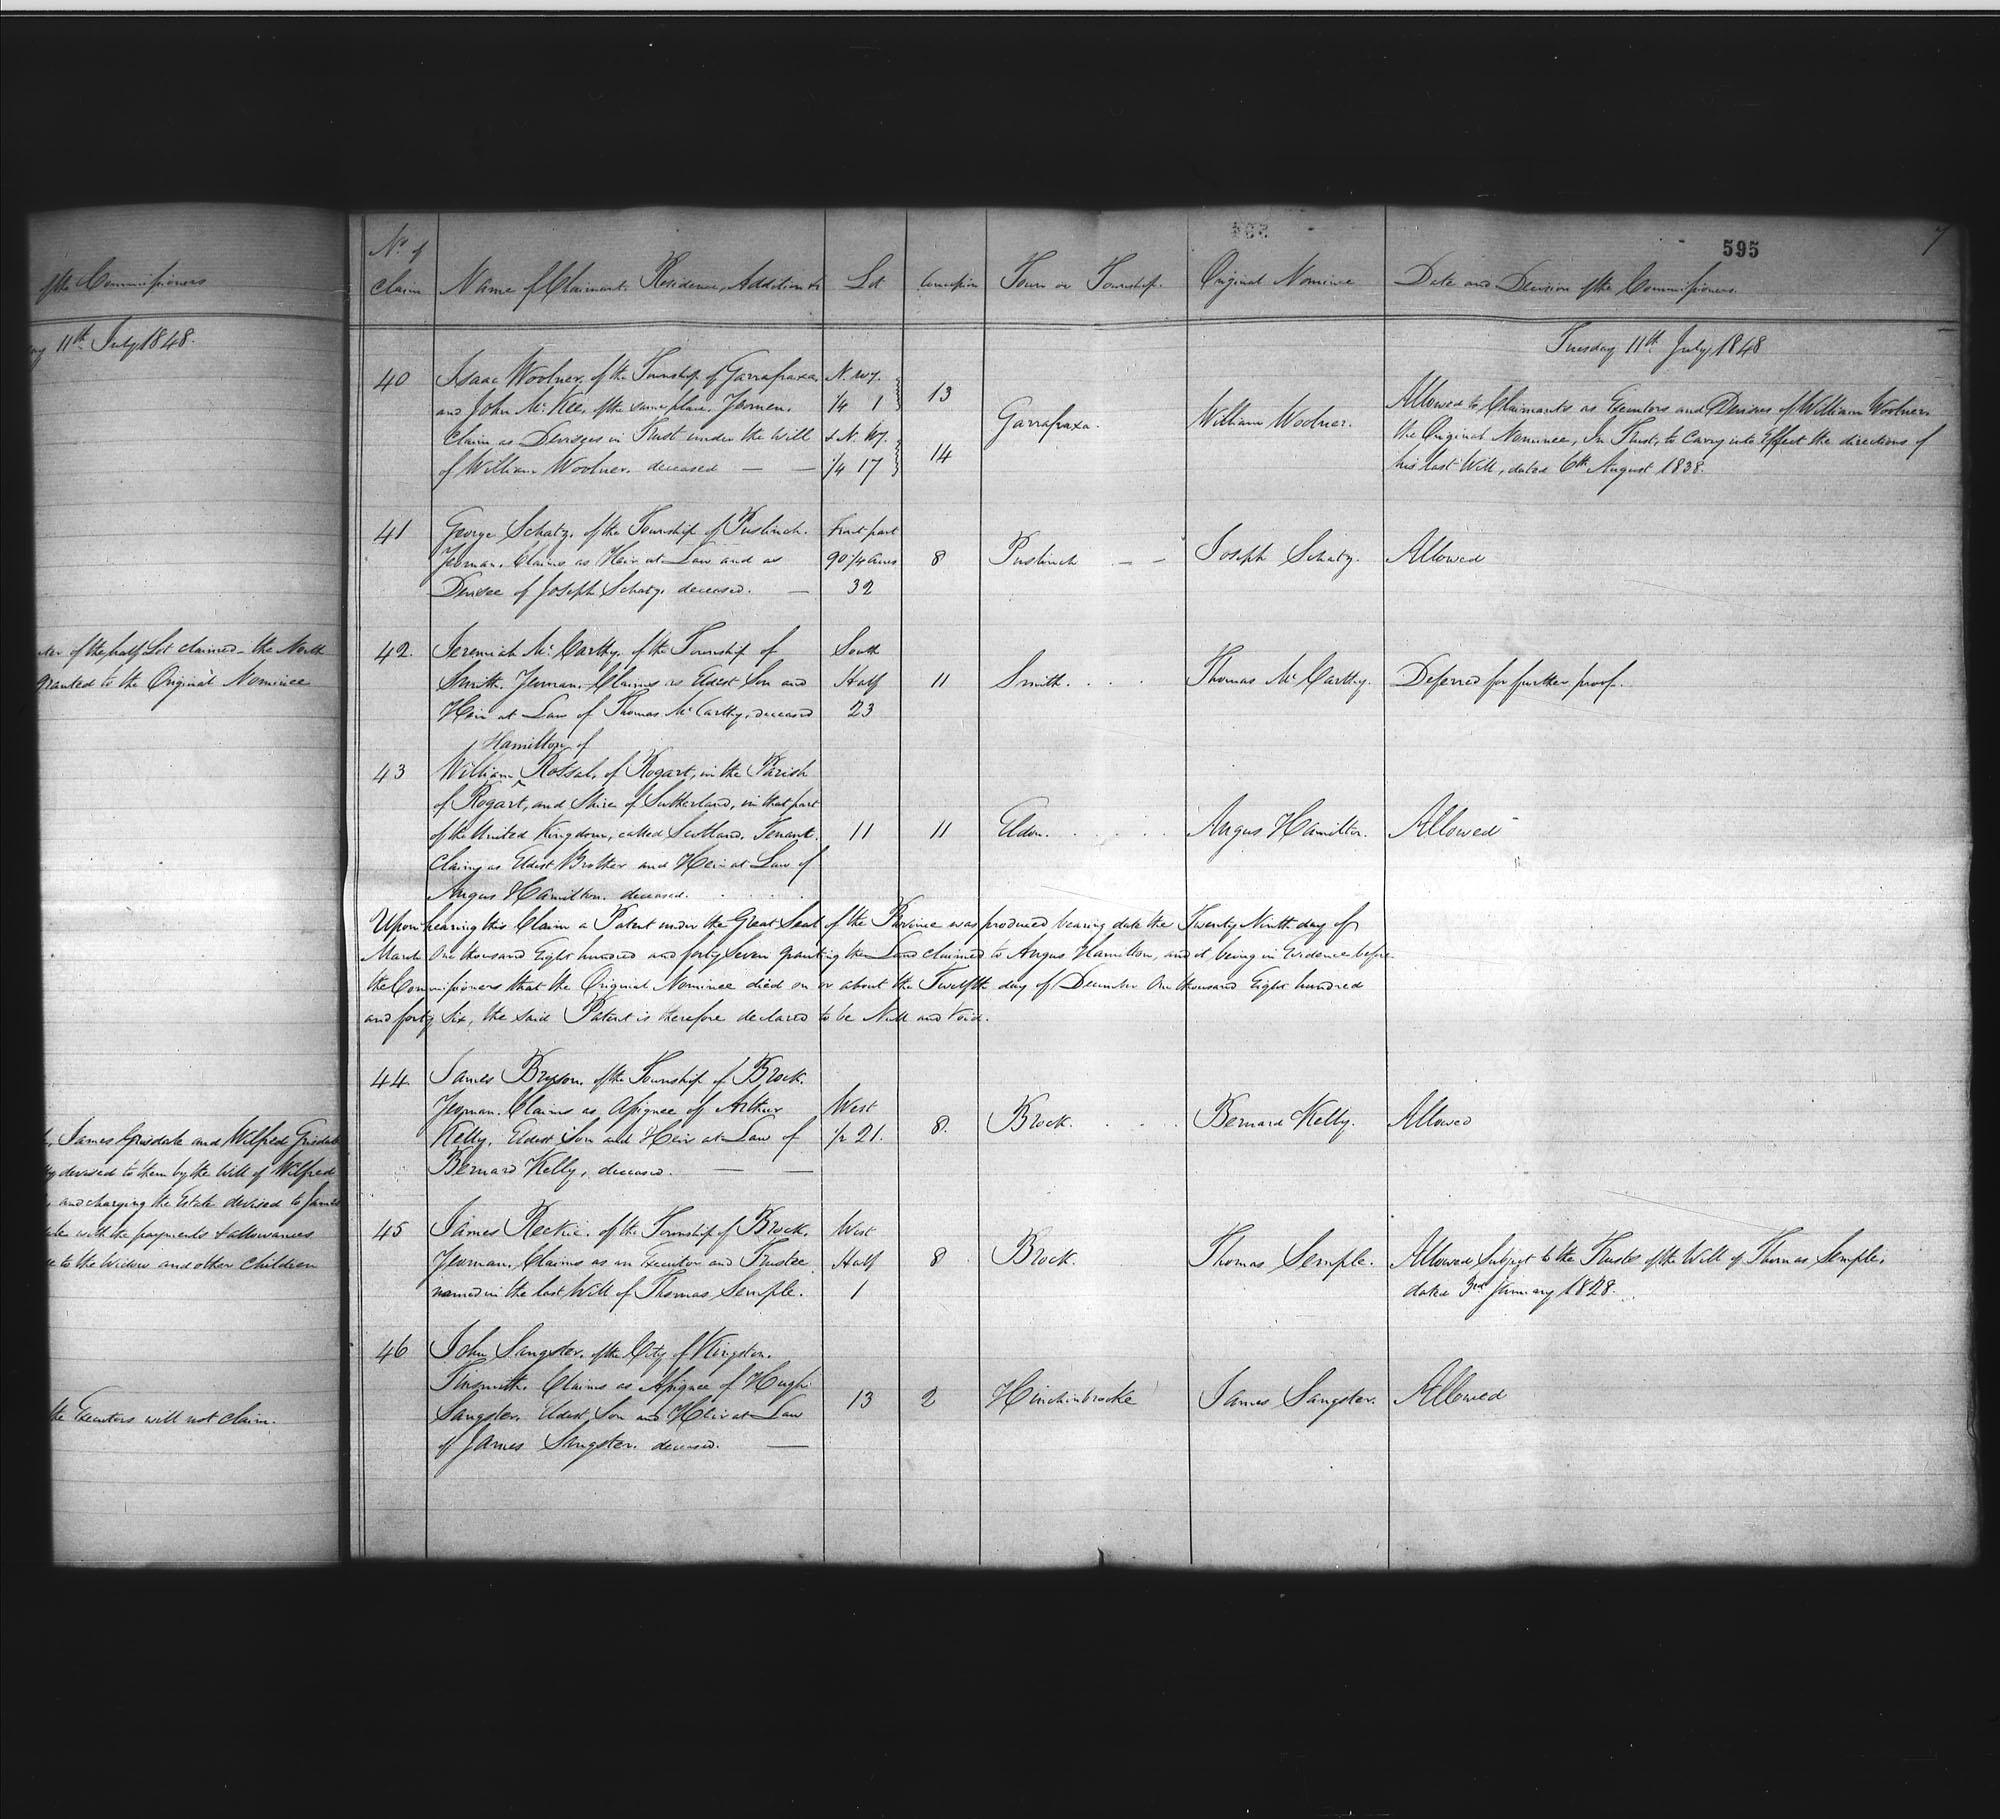 of the Commissioners
11th July 1848.
of the half Lot claimed - the North
granted to the Original Nominee
James Grisdale and Wilfred Grisdale
devised to them by the Will of Wilfred
and charging the Estate devised to James
with the payments & allowances
to the Widow and other Children
the Executors will not claim.
595
7
No. of
Claim
Name of Claimant, Residence, Addition &c
Lot
Concession
Town or Township.
Original Nominee
Date and Decision of the Commissioners.
Tuesday 11th July 1848
40
Isaac Woolner, of the Township of Garrafraxa,
and John McKee, of the same place, Yeomen,
Claim as Devisees in Trust under the Will
of William Woolner, deceased — —
N. Wy.
1/4 1
& N. Wy.
1/4 17
13
14
Garrafraxa.
William Woolner.
Allowed to Claimants as Executors and Devisees of William Woolner
the Original Nominee, In Trust, to Carry into Effect the directions of
his last Will, dated 6th August 1838.
41
George Schatz, of the Township of Puslinch.
Yeoman. Claims as Heir at Law and as
Devisee of Joseph Schatz, deceased. —
Front part
90 1/4 Acres
32
8
Puslinch — —
Joseph Schatz.
Allowed
42.
Jeremiah McCarthy, of the Township of
Smith. Yeoman. Claims as Eldest Son and
Heir at Law of Thomas McCarthy, deceased
South
Half
23
11
Smith. . .
Thomas McCarthy.
Deferred for further proof.
43
Hamilton of
William ^ Rossal, of Rogart, in the Parish
of Rogart, and Shire of Sutherland, in that part
of the United Kingdom, called Scotland, Tenant.
Claims as Eldest Brother and Heir at Law of
Angus Hamilton, deceased.
11
11
Eldon. . . .
Angus Hamilton.
Allowed
Upon hearing this Claim a Patent under the Great Seal of the Province was produced bearing date the Twenty Ninth day of
March One thousand Eight hundred and forty Seven granting the Land claimed to Angus Hamilton, and it being in Evidence before
the Commissioners that the Original Nominee died on or about the Twelfth day of December One thousand Eight hundred
and forty Six, the said Patent is therefore declared to be Null and Void.
44.
James Bryson, of the Township of Brock.
Yeoman. Claims as Assignee of Arthur
Kelly, Eldest Son and Heir at Law of
Bernard Kelly, deceased. — —
West
1/2 21.
8.
Brock. . . .
Bernard Kelly.
Allowed
45
James Reekie, of the Township of Brock.
Yeoman, Claims as an Executor and Trustee
named in the last Will of Thomas Semple.
West
Half
1
8
Brock.
Thomas Semple.
Allowed Subject to the Trusts of the Will of Thomas Semple,
dated 3rd January 1828.
46
John Sangster, of the City of Kingston.
Tinsmith. Claims as Assignee of Hugh
Sangster, Eldest Son and Heir at Law
of James Sangster, deceased. —
13
2
Hinchinbrooke
James Sangster.
Allowed